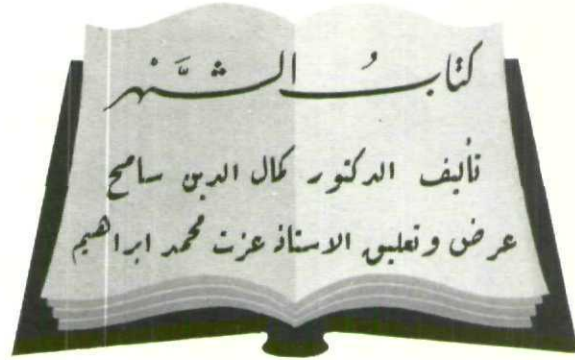 كتابُ الشَّهر
تأليف الدكتور كمال الدين سامح
عرض وتعليق الاستاذ عزت محمد ابراهيم